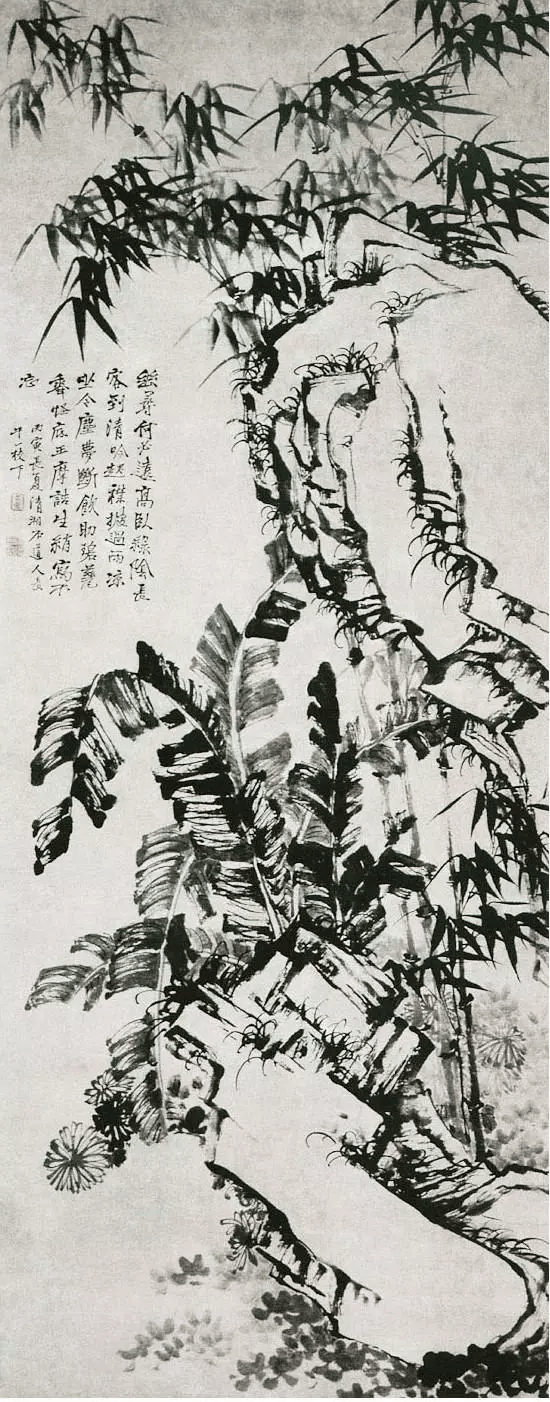 幽尋何必遠高臥綠陰長
客到清吟起襟披過雨凉
坐令塵夢斷飲助碧筩
香怪底王摩詰生綃寫不
忘
丙寅長夏清湘石道人長
干一枝下